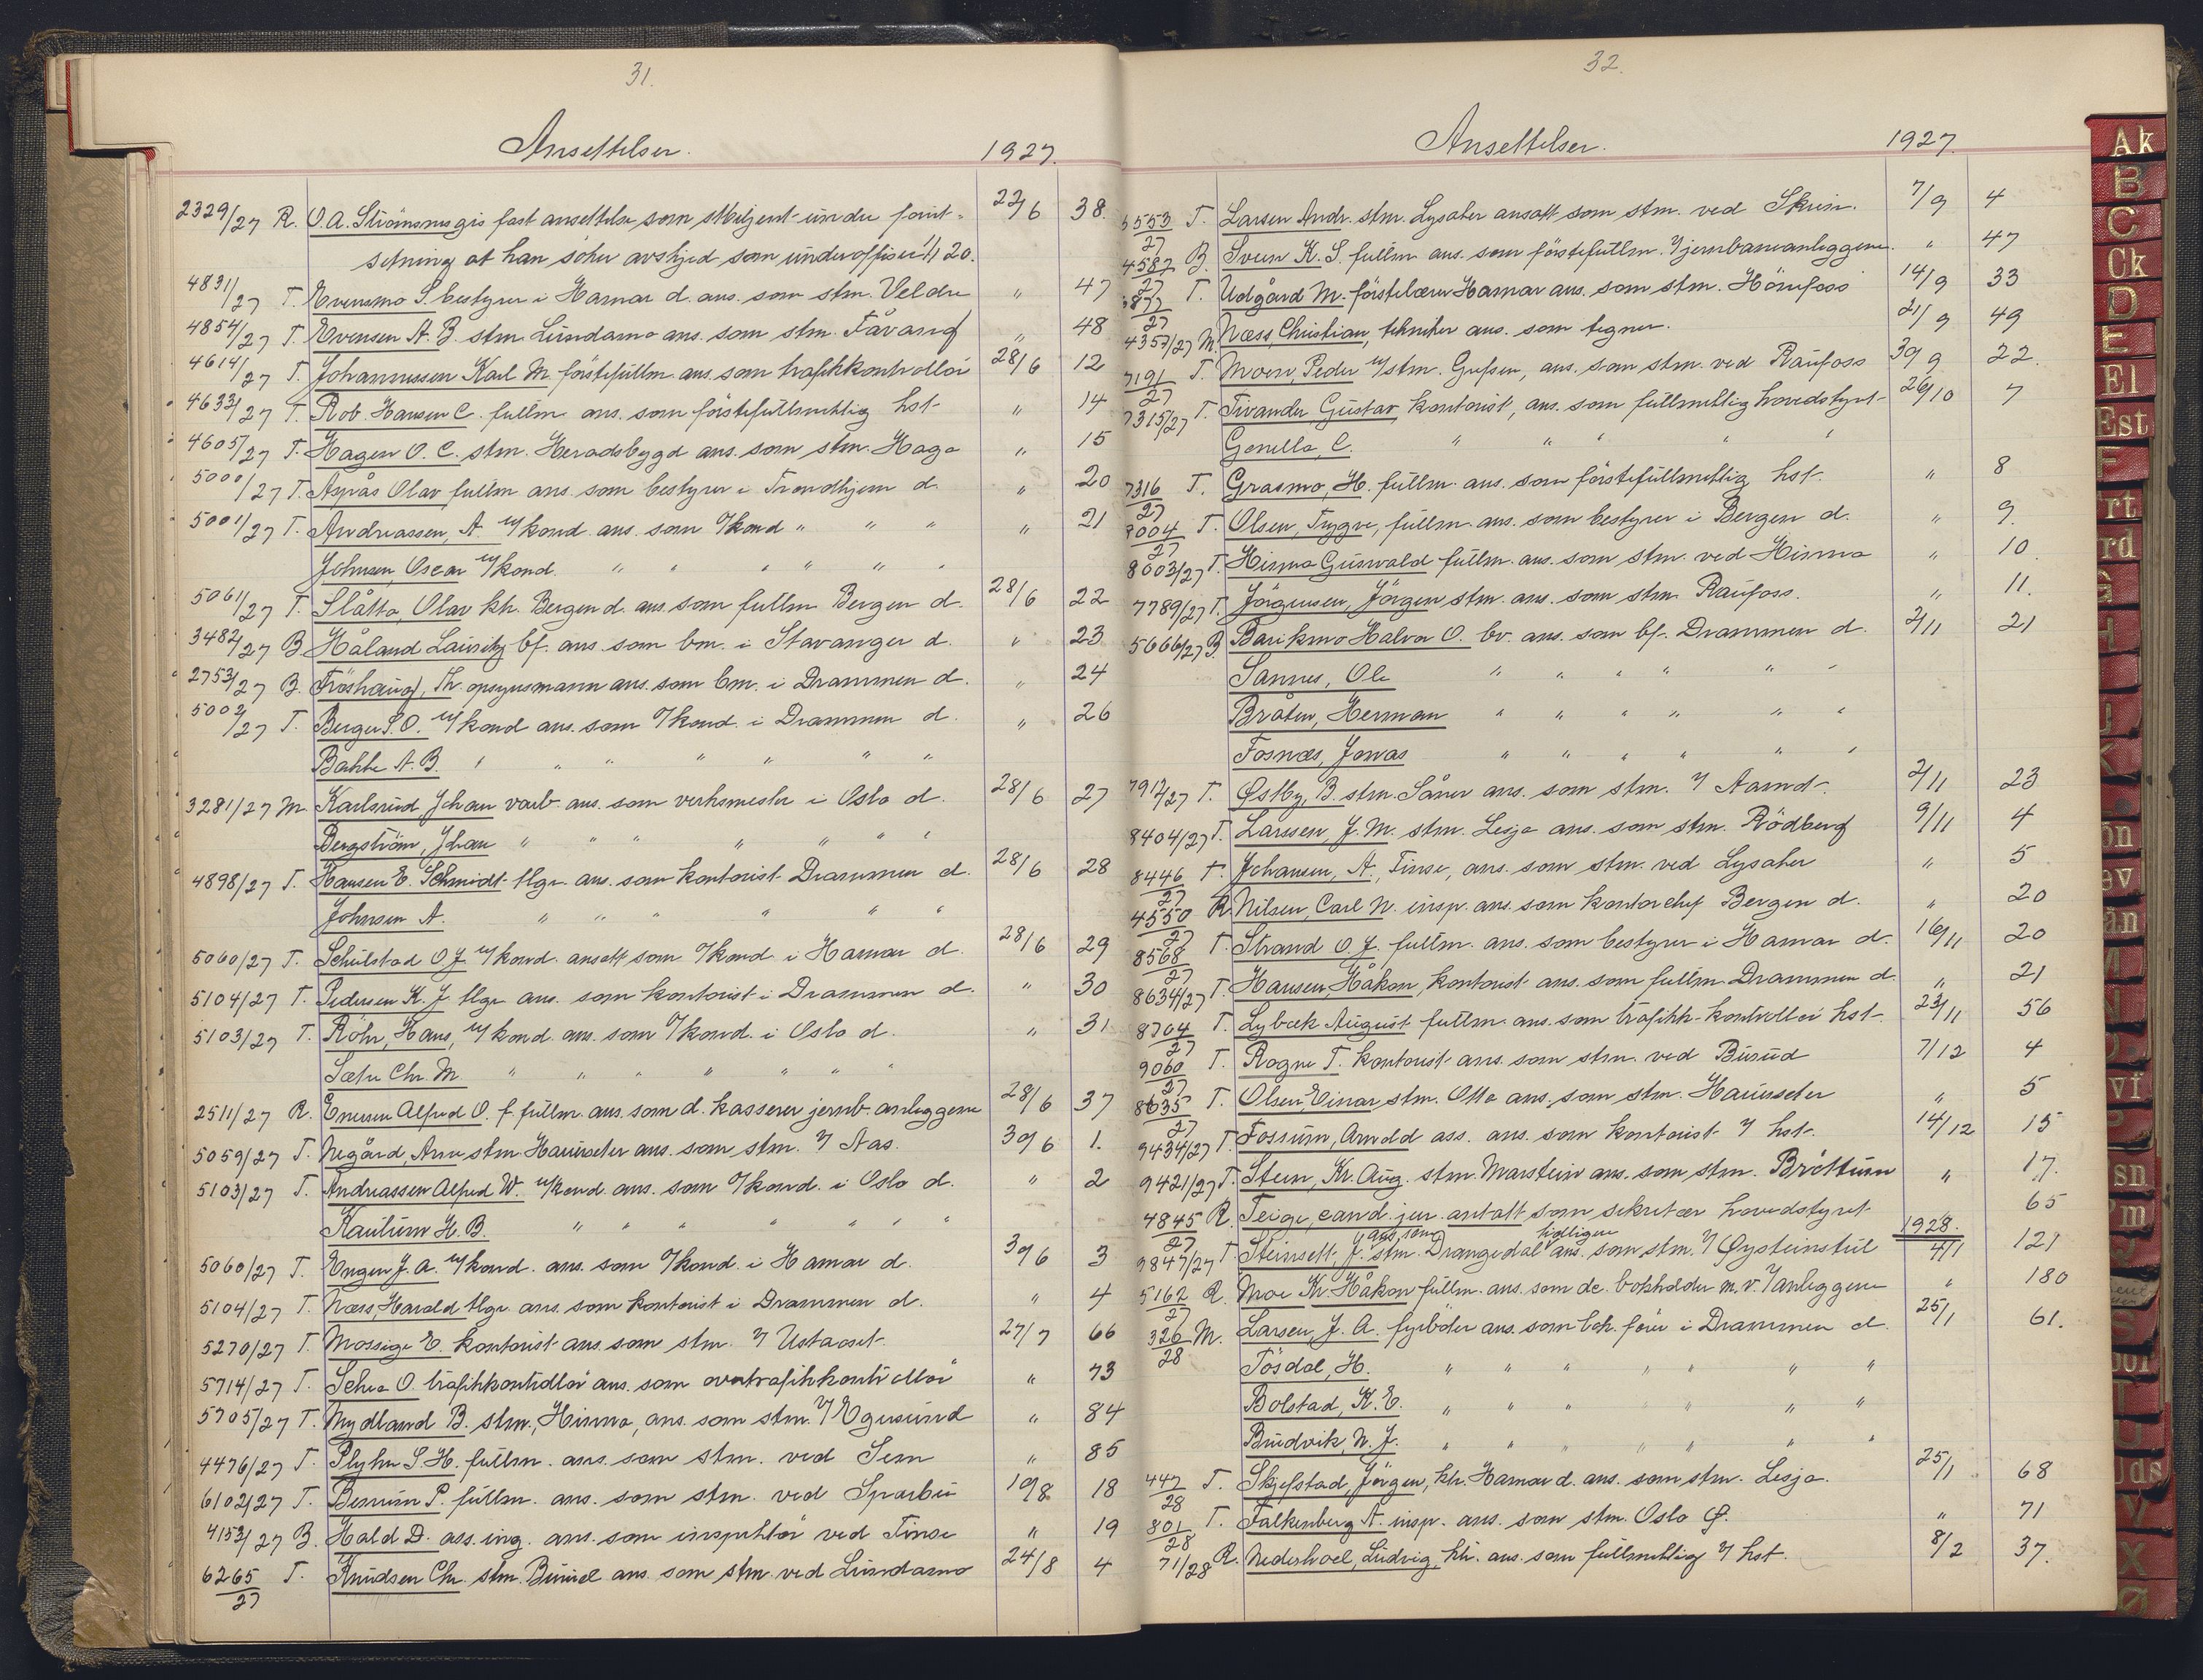 31.
Ansettelser. 1927.
2329/27 R. O. A. Strömsnes gis fast ansettelse som stbetjent under forut-
setning at han söker avskjed som underoffiser 1/1 20. 22/6 38.
4831/27 T. Evensmo S. bestyrer i Hamar d. ans. som stm. Veldre " 47
4854/27 T. Evensen A. B. stm. Lundamo ans. som stm. Fåvang " 48
4614/27 T. Johannessen Karl M. förstefullm. ans. som trafikkontrollör 28/6 12
4633/27 T. Rob. Hansen C. fullm. ans. som förstefullmektig hst. " 14
4605/27 T. Hagen O. C. stm. Heradsbygd ans. som stm. Haga " 15
5000/27 T. Olav fullm. ans. som bestyrer i Trondhjem d. " 20
5001/27 T. Andreassen, A. u/kond. ans. som o/kond " " " " 21
Johnsen, Oscar u/kond. " " " " " "
5061/27 T. Slåtta, Olav kh. Bergen d. ans. som fullm. Bergen d. 28/6 22
3482/27 B. Håland Lauritz bf. ans. som bm. i Stavanger d. " 23
2753/27 B. Fröshaug, Th. opsynsmann ans. som bm. i Drammen d. " 24
5002/27 T. Berger S. O. u/kond ans. som o/kond. i Drammen d. " 26
Bakke A. B. " " " " " " "
3281/27 M. Karlsrud Johan vaub. ans. som verksmester i Oslo d. 28/6 27
Bergström, Johan " " " " " " "
4898/27 T. Hansen E. Schmidt tlgr. ans. som kontorist Drammen d. 28/6 28
Johnsen A. " " " " " "
5060/27 T. Schulstad O. J. u/kond. ansatt som o/kond i Hamar d. 28/6 29
5104/27 T. Pedersen K. J. tlgr. ans. som kontorist i Drammen d. " 30
5103/27 T. Röhr, Hans, u/kond. ans. som o/kond. i Oslo d. " 31
Sætre Chr. M. " " " " " " "
2511/27 R. Enersen Alfred O. f. fullm. ans. som d. kasserer jernb. anleggene 28/6 37
5059/27 T. Negård, Arne stm. Hauerseter ans. som stm. v/ Aas. 30/6 1.
5103/27 T. Andreassen Alfred W. u/kond. ans. som o/kond. i Oslo d. " 2
Kaulum H. B. " " " " " " "
5060/27 T. Engen J. A. u/kond. ans. som o/kond. i Hamar d. 30/6 3
5104/27 T. Næss, Harald tlgr. ans. som kontorist i Drammen d. " 4
5270/27 T. Mossige E. kontorist ans. som stm. v/ Ustaoset. 27/7 66
5714/27 T. Schea O. trafikkontrollör ans. som overtrafikkontrollör " 73
5705/27 T. Mydland B. stm. Hinna, ans. som stm. v/ Egersund " 84
4476/27 T. Plyhn S. H. fullm. ans. som stm. ved Sem " 85
6102/27 T. Besrum P. fullm. ans. som stm. ved Sparbu 19/8 18
4153/27 B. Hald D. ass. ing. ans. som inspektör ved Finse " 19
6265/27 T. Knudsen Chr. stm. ans. som stm. ved Lundamo 24/8 4
32.
Ansettelser. 1927.
5553/27 T. Larsen Andr. stm. Lysaker ansatt som stm. ved Skien. 7/9 4
4587/27 B. Sveen K. S. fullm. ans. som förstefullm. v/ jernbaneanleggene. " 47
T. Udgård M. förstelærer Hamar ans. som stm. Hönefoss 14/9 33
4357/27 M. Næss, Christian, tekniker ans. som tegner. 21/9 49
7191/27 T. Moen, Peder u/stm. Grefsen, ans. som stm. ved Raufoss 30/9 22.
7315/27 T. Tivander Gustav kontorist, ans. som fullmektig hovedstyret 26/10 7
Genello, C. " " " " "
7316/27 T. Grasmo, H. fullm. ans. som förstefullmektig hst. " 8
8004/27 T. Olsen, Trygve, fullm. ans. som bestyrer i Bergen d. " 9.
8003/27 T. Hinna Gunvald fullm. ans. som stm. ved Hinna " 10.
7789/27 T. Jörgensen, Jörgen stm. ans. som stm. Raufoss. " 11.
5666/27 B. Barikmo Halvor O. bv. ans. som bf. Drammen d. 2/11 21
Sannes, Ole " " " " " "
Bråten, Herman " " " " " "
Fosnæs, Jonas " " " " " "
7912/27 T. Østby, B. stm. Såner ans. som stm. v/ Aamot. 2/11 23
8404/27 T. Larssen, J. M. stm. Lesja ans. som stm. Rödberg 9/11 4
8446/27 T. Johansen, A., Finse, ans. som stm. ved Lysaker " 5
4550/27 R. Nilsen, Carl N. insp. ans. som kontorchef Bergen d. " 20
8568/27 T. Strand O. J. fullm. ans. som bestyrer i Hamar d. 16/11 20
8634/27 T. Hansen, Håkon, kontorist ans. som fullm. Drammen d. " 21
8704/27 T. Lybæk August fullm. ans. som trafikk-kontrollör hst. 23/11 56
9060/27 T. Rogne T. kontorist ans. som stm. ved Burud 7/12 4
8635/27 T. Olsen Einar stm. Otta ans. som stm. Hauerseter " 5
9434/27 T. Fossum, Arnold ass. ans. som kontorist v/ hst. 14/12 15
9421/27 T. Steen, Kr. Aug. stm. Marstein ans. som stm. Bröttum " 17.
4845/27 R. Teige, cand. jur. antatt som sekretær hovedstyret 65
9847/27 T. Steinsett, J. stm. Drangedal ans. som tidligere ans. som stm. v/ Øysteinstul 1928. 4/1 121
5162/27 R. Moe Kr. Håkon fullm. ans. som de. bokholder m. v. v/ anleggene " 180
326/28 M. Larsen, J. A. fyrböter ans. som lok. förer i Drammen d. 25/1 61.
Tösdal, H. " " " " " " "
Bolstad, K. E. " " " " " " "
Brudvik, N. J. " " " " " " "
447/28 T. Skjefstad, Jörgen, kh. Hamar d. ans. som stm. Lesja. 25/1 68
801/28 T. Falkenberg A. insp. ans. som stm. Oslo Ø. " 71
71/28 R. Nederhoel, Ludvig, kh. ans. som fullmektig v/ hst. 8/2 37.
Ak
B
C
Ck
D
E
El
Est
F
rt
rd
G
H
I
J
K
ön
ev
än
M
N
vi
P
sn
S
T
U
Uds
V
X
Ø